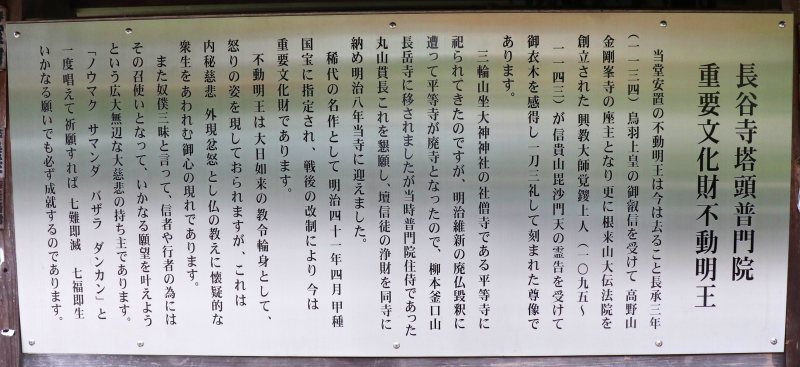 長谷寺塔頭普門院
重要文化財不動明王
当堂安置の不動明王は今は去ること長承三年
（一一三四）鳥羽上皇の御叡信を受けて 高野山
金剛峯寺の座主となり更に根来山大伝法院を
創立された 興教大師覚鑁上人（一〇九五～
一一四三）が信貴山毘沙門天の霊告を受けて
御衣木を感得し 一刀三礼して刻まれた尊像で
あります。
三輪山坐大神神社の社僧寺である平等寺に
祀られてきたのですが、明治維新の廃仏毀釈に
遭って平等寺が廃寺となったので、柳本釜口山
長岳寺に移されましたが当時普門院住侍であった
丸山貫長これを懇願し、壇信徒の浄財を同寺に
納め明治八年当寺に迎えました。
稀代の名作として 明治四十一年四月 甲種
国宝に指定され、戦後の改制により 今は
重要文化財であります。
不動明王は大日如来の教令輪身として、
怒りの姿を現しておられますが、これは
内秘慈悲 外現忿怒とし仏の教えに懐疑的な
衆生をあわれむ御心の現れであります。
また奴僕三昧と言って、信者や行者の為には
その召使いとなって、いかなる願望を叶えよう
という広大無辺な大慈悲の持ち主であります。
「ノウマク サマンダ バザラ ダンカン」と
一度唱えて祈願すれば 七難即滅 七福即生
いかなる願いでも必ず成就するのであります。